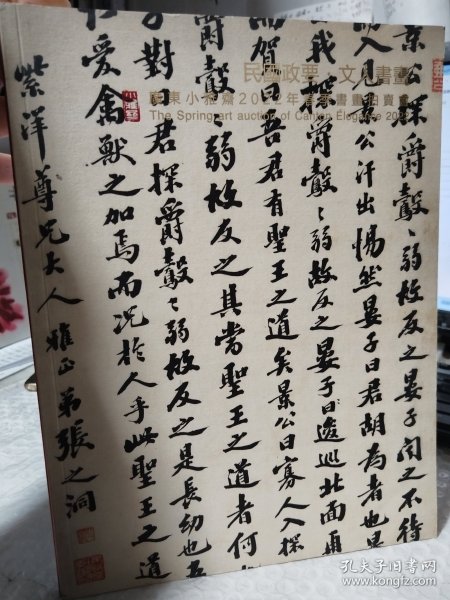 民國政要、文人書畫
廣東小雅齋2022年春季書畫拍賣會
The Spring art auction of Canton Elegance 2022
景公探爵鷇鷇弱故反之晏子聞之不待
入見景公汗出惕然晏子曰君胡為者也景
我探爵鷇鷇弱故反之晏子逡巡北面再
而賀曰吾君有聖王之道矣景公曰寡人入探
爵鷇鷇弱故反之其當聖王之道者何
對曰君探爵鷇鷇弱故反之是長幼也吾
愛禽獸之加焉而況於人乎此聖王之道
紫洋尊兄大人雅正弟張之洞
孔夫子旧书网
www.kongfz.com